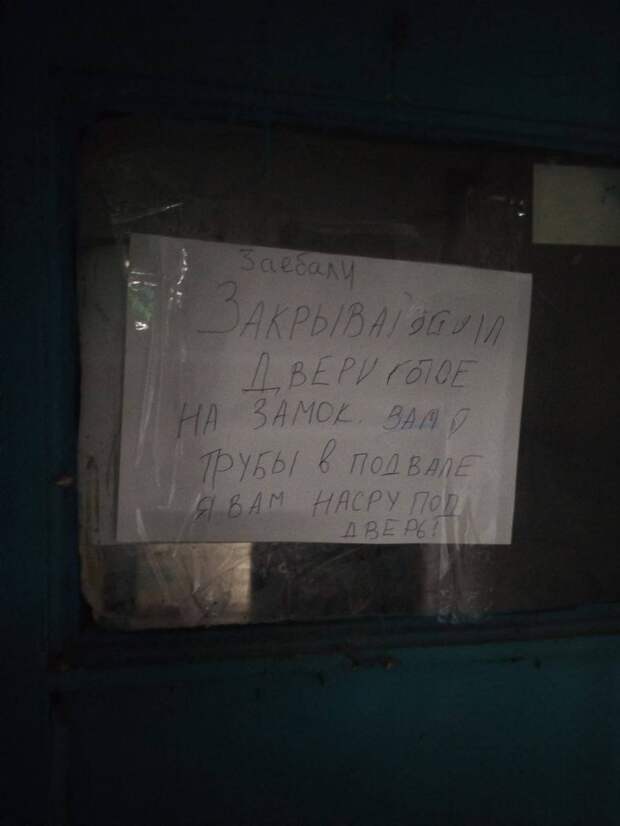 Заебали
ЗАКРЫВАЙ
ДВЕРИ
НА ЗАМОК.
ТРУБЫ В ПОДВАЛЕ
Я ВАМ НАСРУ ПОД
ДВЕРЬ!